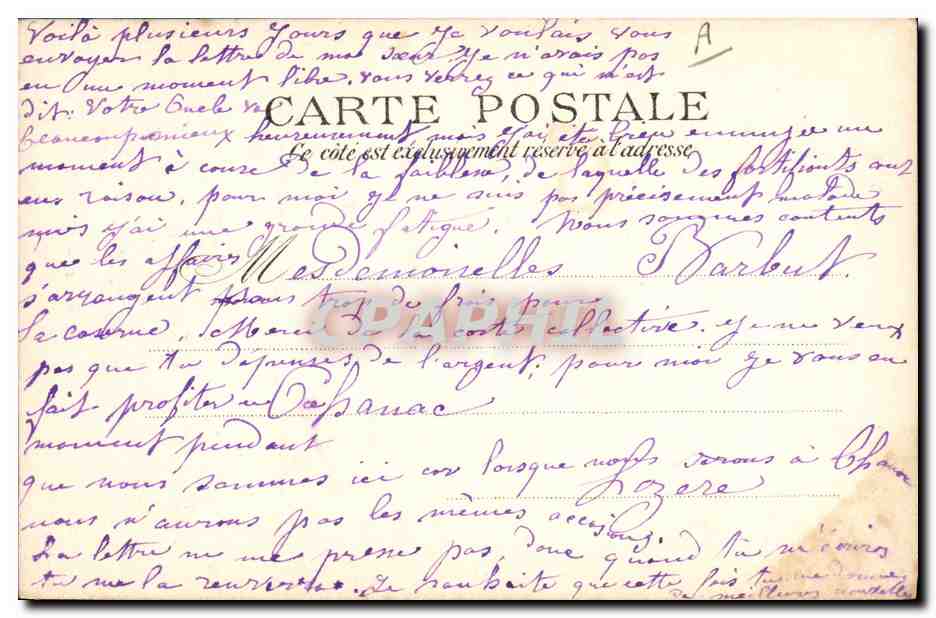 Voilà plusieurs jours que je voulais vous
A
envoyer la lettre de ma sœur je n'avais pas
eu un moment libre. vous verrez ce qui m'est
dit. Votre Oncle va
CARTE POSTALE
beaucoup mieux heureusement, mais j'ai été bien ennuyée un
Ce côté est exclusivement réservé à l'adresse
moment à cause de la faiblesse, de laquelle des fortifiants ont
eu raison, pour moi je ne suis pas précisément malade
mais j'ai une grande fatigue. Nous sommes contents
que les affaires
Mesdemoiselles Barbut.
s'arrangent sans trop de frais pour
la course, Merci de la carte collective. je ne veux
CPAPHIL
pas que tu dépenses de l'argent, pour moi je vous en
fait profiter en
Chanac
moment pendant
que nous sommes ici car lorsque nous serons à Chanac
Lozere
nous n'aurons pas les mêmes accasions
La lettre ne me presse pas, donc quand tu m'écriras
tu me la renverras. Je souhaite que cette fois tu me donnes
de meilleures nouvelles